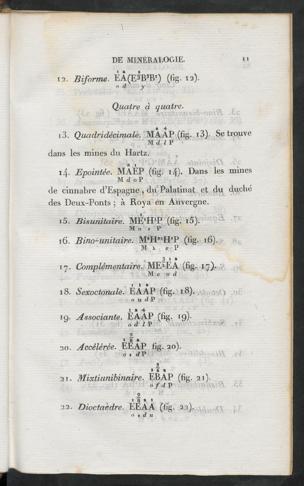 DE MINÉRALOGIE. 11
12. Biforme. EA(E³B¹B²) (fig. 12).
Quatre à quatre.
13. Quadridécimale. MAAP (fig. 13). Se trouve
M d l P
dans les mines du Hartz.
14. Epointée. MAEP (fig. 14). Dans les mines
M d o P
de cinnabre d'Espagne, du Palatinat et du duché
des Deux-Ponts; à Roya en Auvergne.
15. Bisunitaire. (fig. 15).
16. Bino-unitaire. (fig. 16).
17. Complémentaire. (fig. 17).
18. Sexoctonale. EAAP (fig. 18).
19. Associante. EAAP (fig. 19).
o d l P
20. Accélérée. EEAP fig. 20).
21. Mixtiunibinaire. EBAP (fig. 21).
o f d P
22. Dioctaèdre. EEAA (fig. 22).